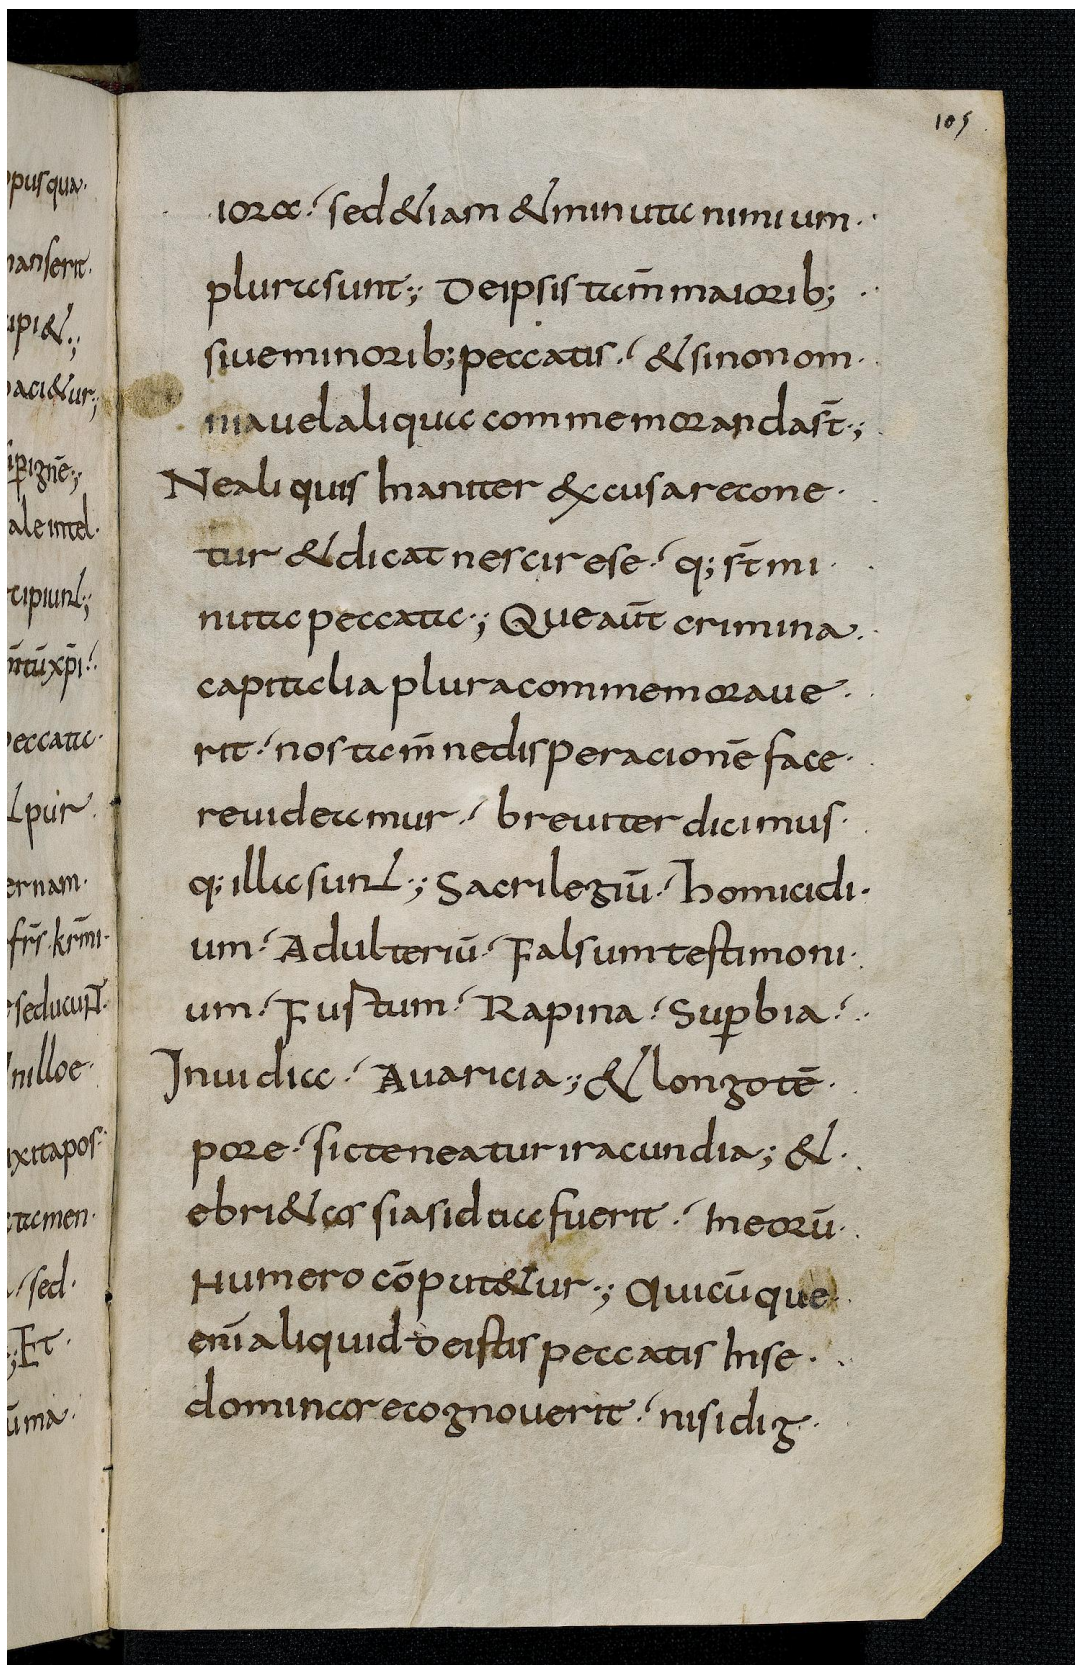 105
opus qua·
manserit·
cipi&·;
paci&ur·;
ale intel·
cipiunt·;
eccata·
ernam·
nilloe·
tamen·
sed·
Et·
ūma·
iora·/ sed &iam & minuta nimium·
plura sunt·; De ipsis tam̄ maiorib;
siue minorib; peccatis·/ & si non om·
nia uel aliqua commemoranda s̄t·;
Ne aliquis inaniter excusare cone·
tur & dicat nescire se·/ q; s̄t mi·
nuta peccata·; Que aūt crimina·
capitalia plura commemoraue·
rit·/ nos tam̄ ne disperacionē face·
re uideamur·/ breuiter dicimus·
q; illa sunt·; Sacrilegiū·/ homicidi·
um·/ Adulteriū·/ Falsum testimoni·
um·/ Fustum·/ Rapina·/ Sup̱bia·/
Inuidia·/ Auaricia·; & longo tē·
pore·/ sic teneatur iracundia·; &·
ebri&as si asidua fuerit·/ In eorū·
Numero cōput&ur·; Quicūque
enī aliquid de istis peccatis In se·
dominare cognouerit·/ nisi dig·